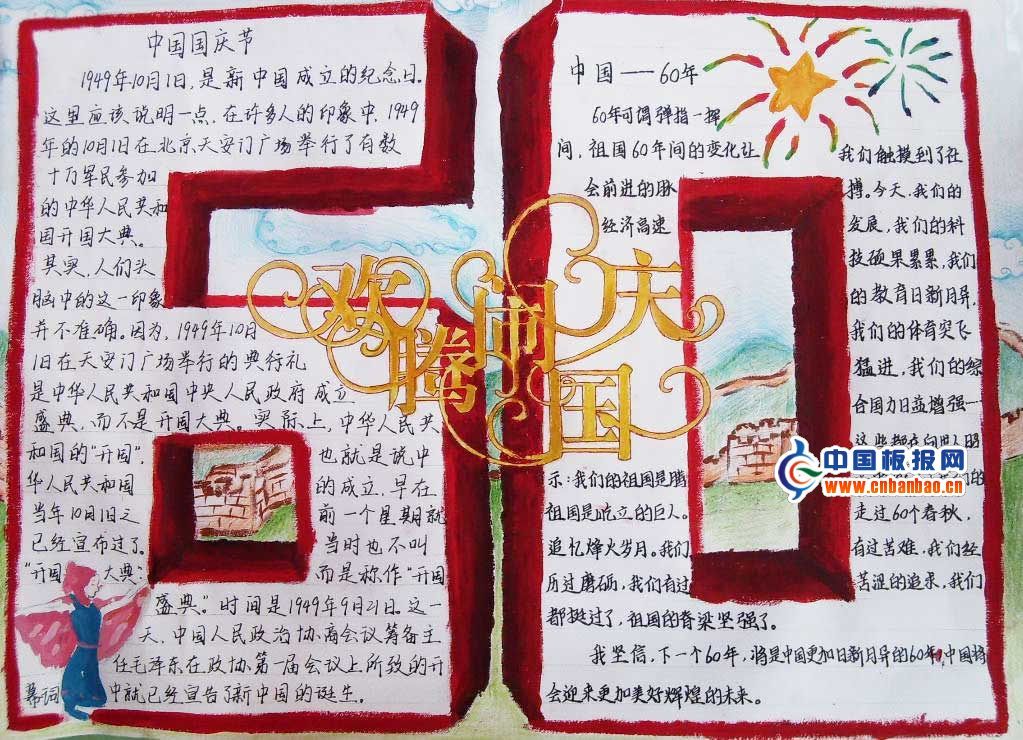 中国国庆节
1949年10月1日，是新中国成立的纪念日。
这里应该说明一点，在许多人的印象中，1949
年的10月1日在北京天安门广场举行了有数
十万军民参加
的中华人民共和
国开国大典。
其实，人们头
脑中的这一印象
并不准确。因为，1949年10月
1日在天安门广场举行的典行礼
是中华人民共和国中央人民政府成立
盛典，而不是开国大典。实际上，中华人民共
和国的“开国”，也就是说中
华人民共和国的成立，早在
当年10月1日之前一个星期就
已经宣布过了。当时也不叫
“开国大典”，而是称作“开国
盛典”。时间是1949年9月21日。这一
天，中国人民政治协商会议筹备主
任毛泽东在政协第一届会议上所致的开
幕词中就已经宣告了新中国的诞生。
欢腾闹国庆
中国——60年
60年可谓弹指一挥
间，祖国60年间的变化让我们触摸到了社
会前进的脉搏。今天，我们的
经济高速发展，我们的科
技硕果累累，我们
的教育日新月异，
我们的体育突飞
猛进，我们的综
合国力日益增强——
这些都在向世人昭
示：我们的祖国是腾
的
祖国是屹立的巨人。走过60个春秋，
追忆烽火岁月。我们有过苦难，我们经
历过磨砺，我们有过苦涩的追求，我们
都挺过了，祖国的脊梁坚强了。
我坚信，下一个60年，将是中国更加日新月异的60年，中国将
会迎来更加美好辉煌的未来。
中国板报网
www.cnbanbao.cn